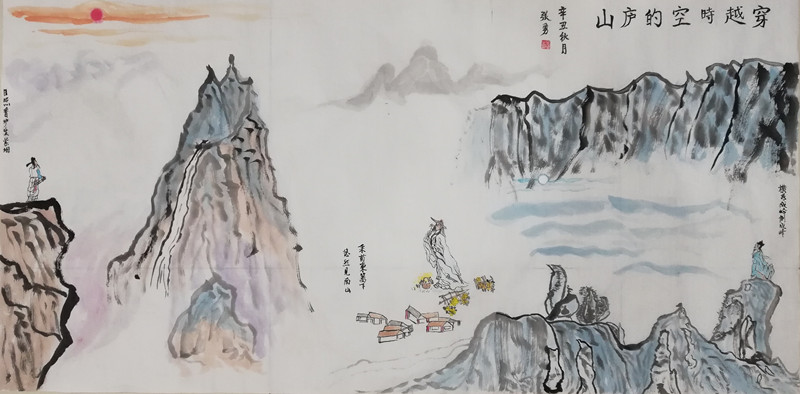 穿越時空的庐山
辛丑秋月
张勇
横看成岭侧成峰
采菊东篱下
悠然见南山
日照香炉生紫烟